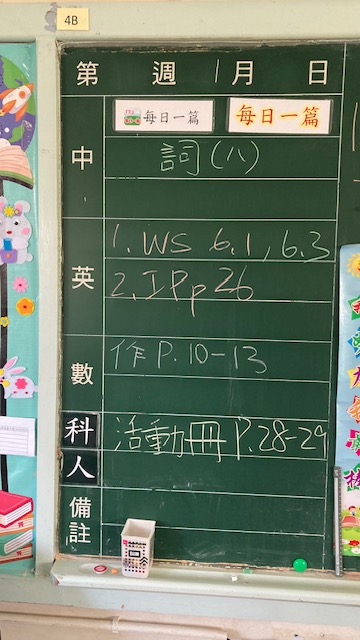 4B
第 週 1月 日
每日一篇 每日一篇
中 詞(八)
英 1. WS 6.1, 6.3
2. IPp26
數 作 P.10-13
科 活動冊 P.28-29
人
備註